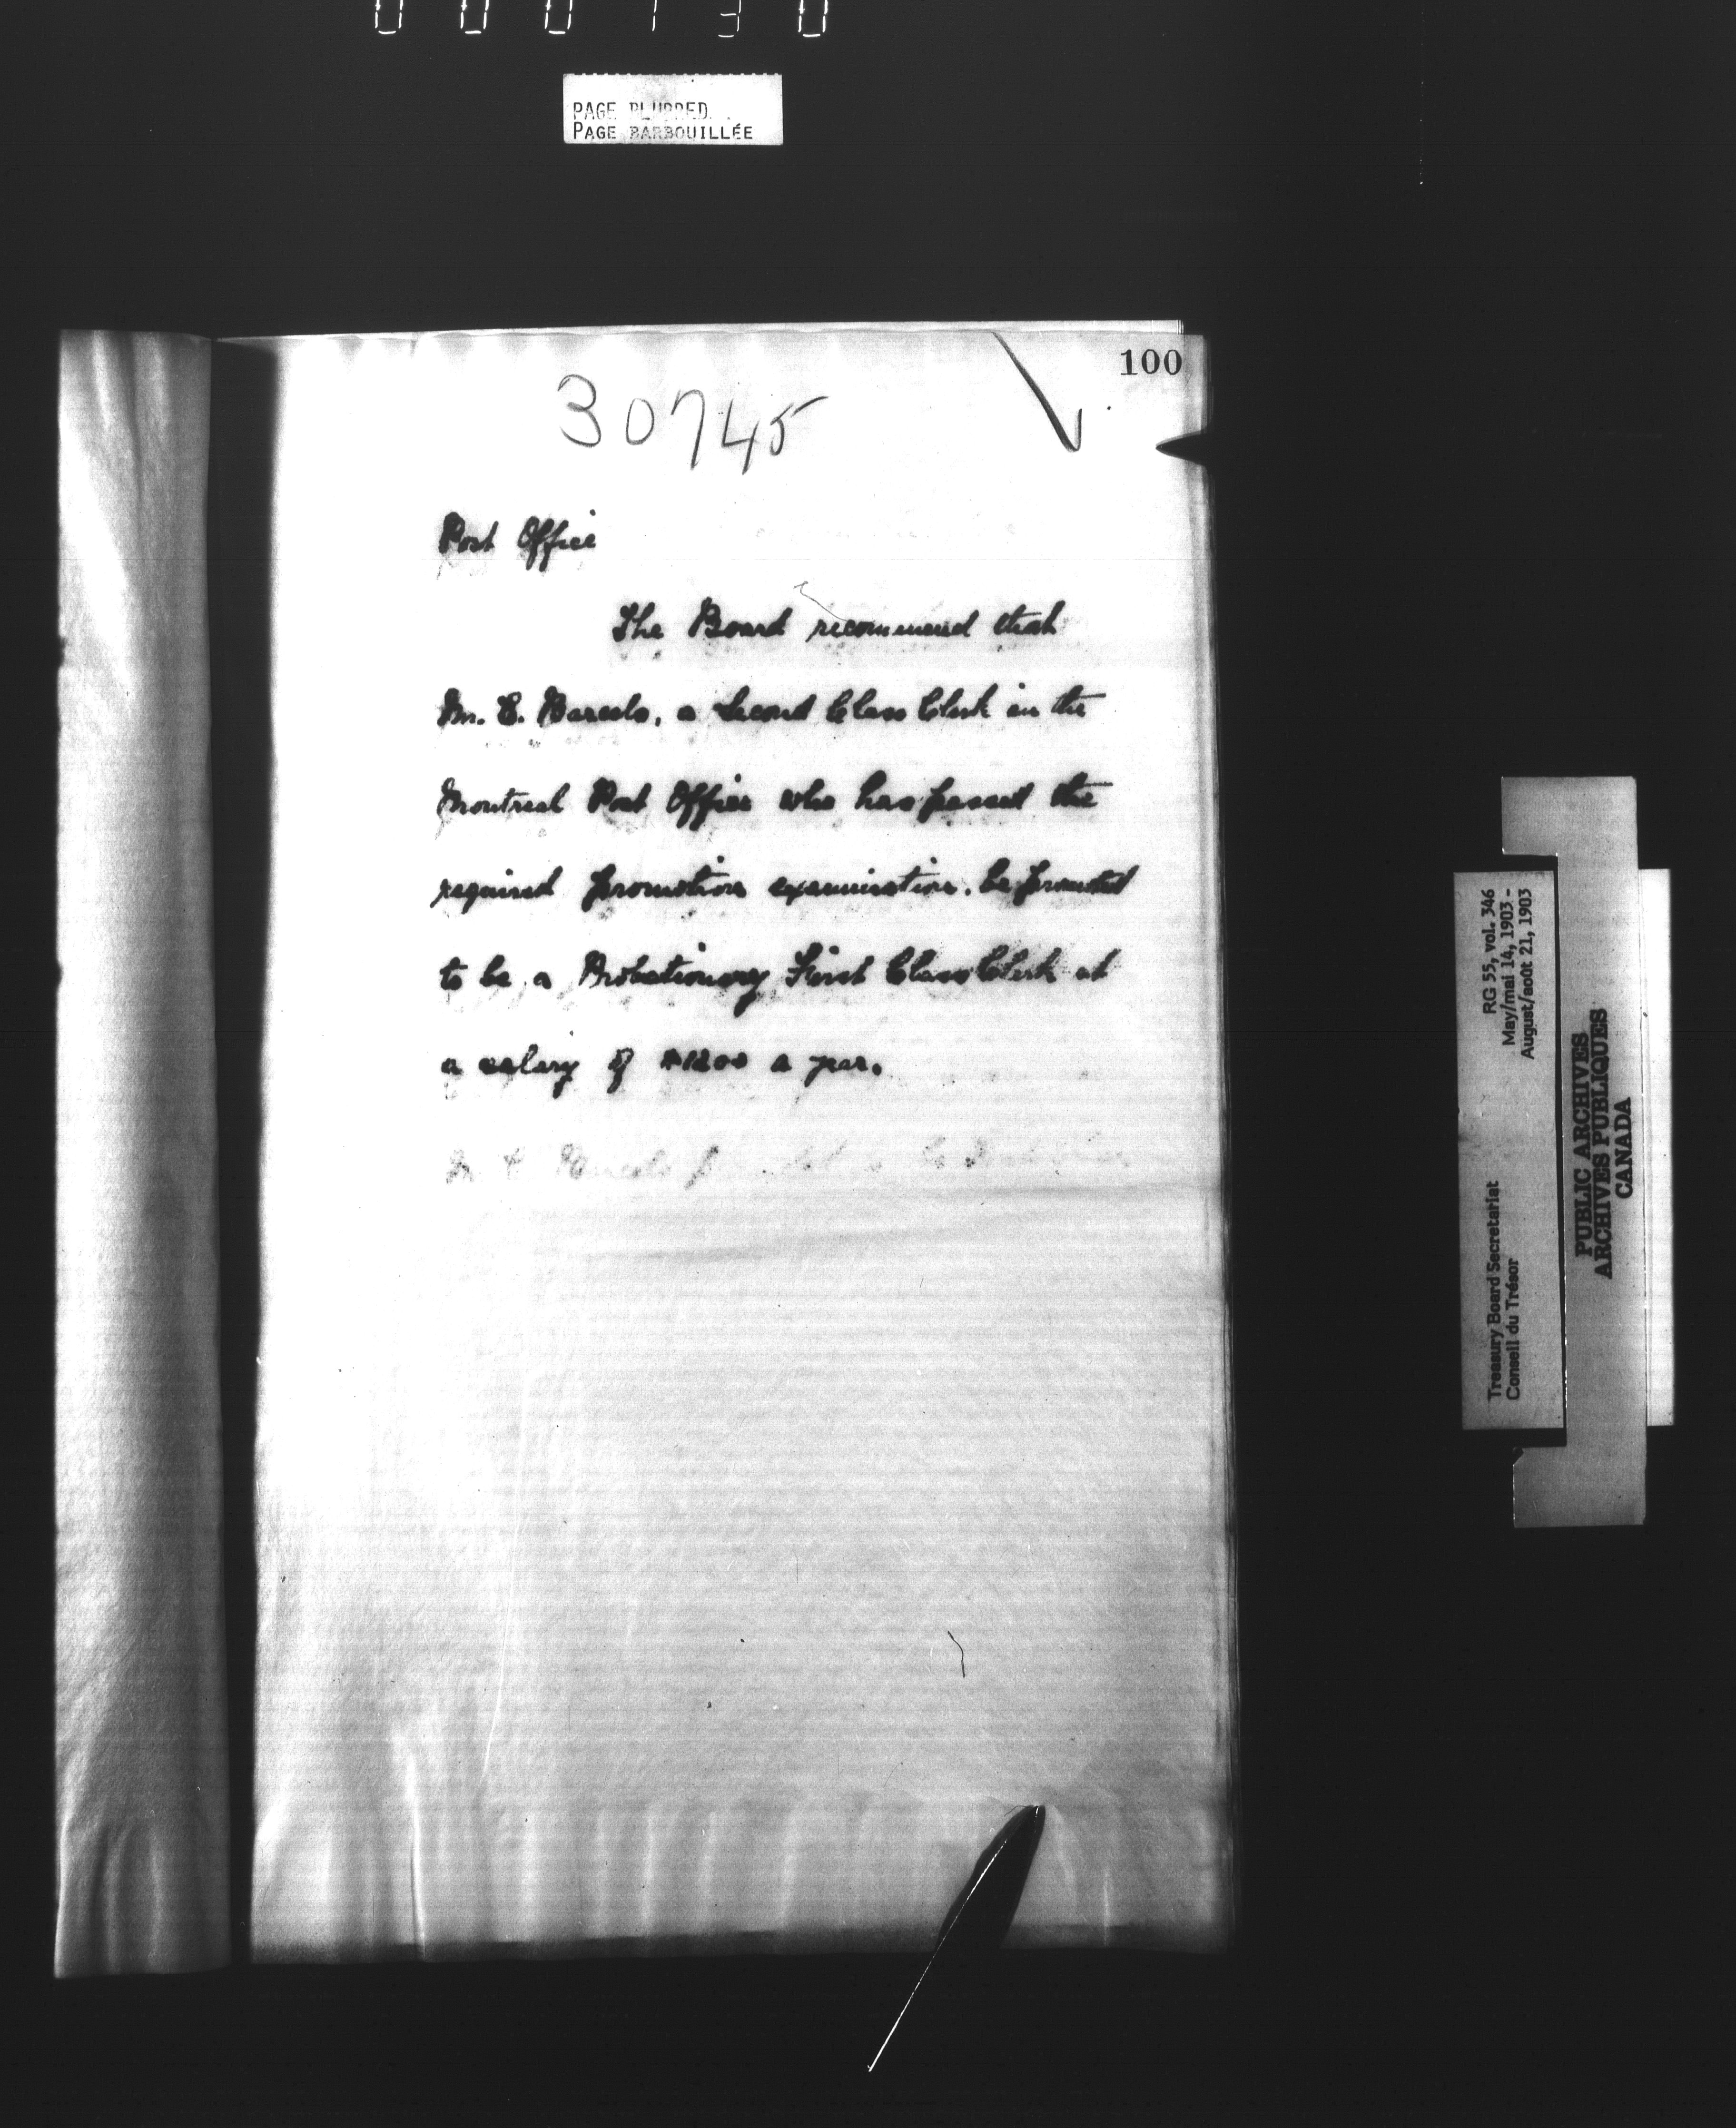 000130
PAGE BLURRED
PAGE BARBOUILLÉE
100
30745
Post Office
The Board recommend that
Mr. E. Barcelo, a Second Class Clerk in the
Montreal Post Office who has passed the
required promotion examination, be promoted
to be a Probationary First Class Clerk at
a salary of $1200 a year.
Barcelo
RG 55, vol. 346
May/mai 14, 1903 -
August/août 21, 1903
Treasury Board Secretariat
Conseil du Trésor
PUBLIC ARCHIVES
ARCHIVES PUBLIQUES
CANADA